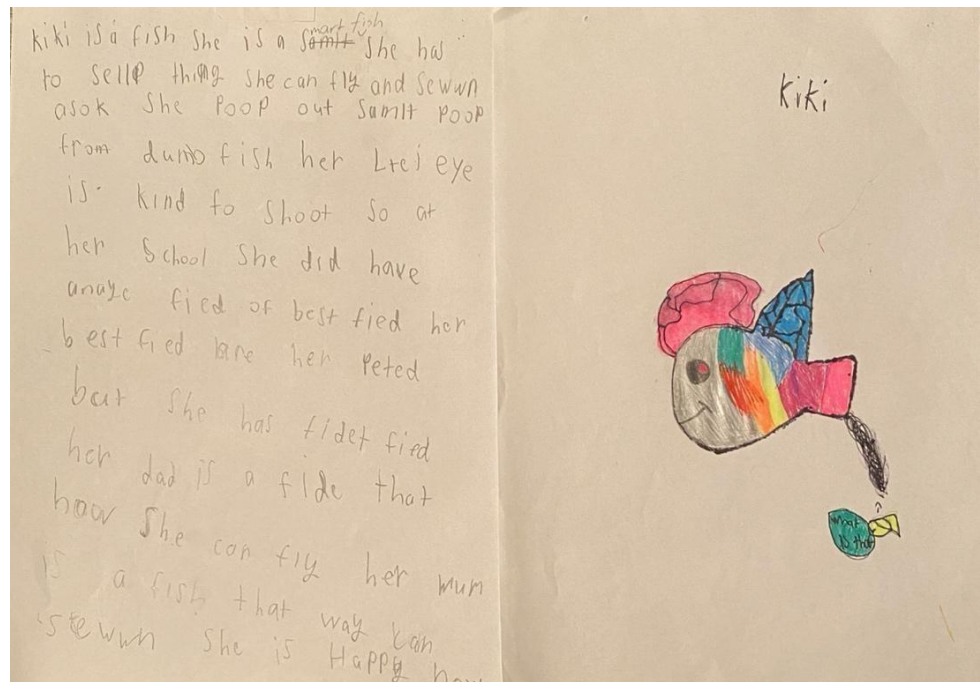 kiki is a fish she is a smart fish she has
to sellp thing she can fly and sewwn
asok she poop out samlt poop
from dumb fish her Ltei eye
is kind to shoot so at
her school she did have
anayc fied of best fied her
best fied are her Peted
but she has fidet fied
her dad is a fide that
how she can fly her mum
is a fish that way can
stewwn she is Happy how
kiki
what
is that